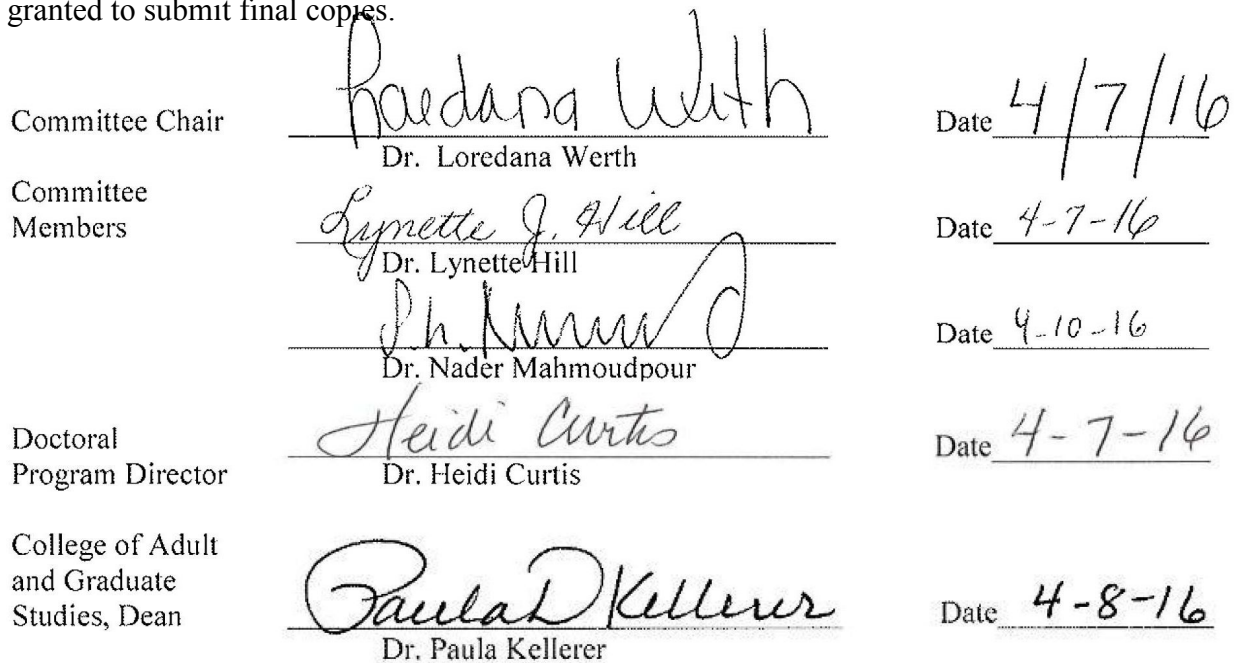 granted to submit final copies.
Committee Chair Loredana Werth Date 4/7/16
Dr. Loredana Werth
Committee
Members Lynette J. Hill Date 4-7-16
Dr. Lynette Hill
Date 4-10-16
Dr. Nader Mahmoudpour
Doctoral
Program Director Heidi Curtis Date 4-7-16
Dr. Heidi Curtis
College of Adult
and Graduate
Studies, Dean Paula D Kellerer Date 4-8-16
Dr. Paula Kellerer